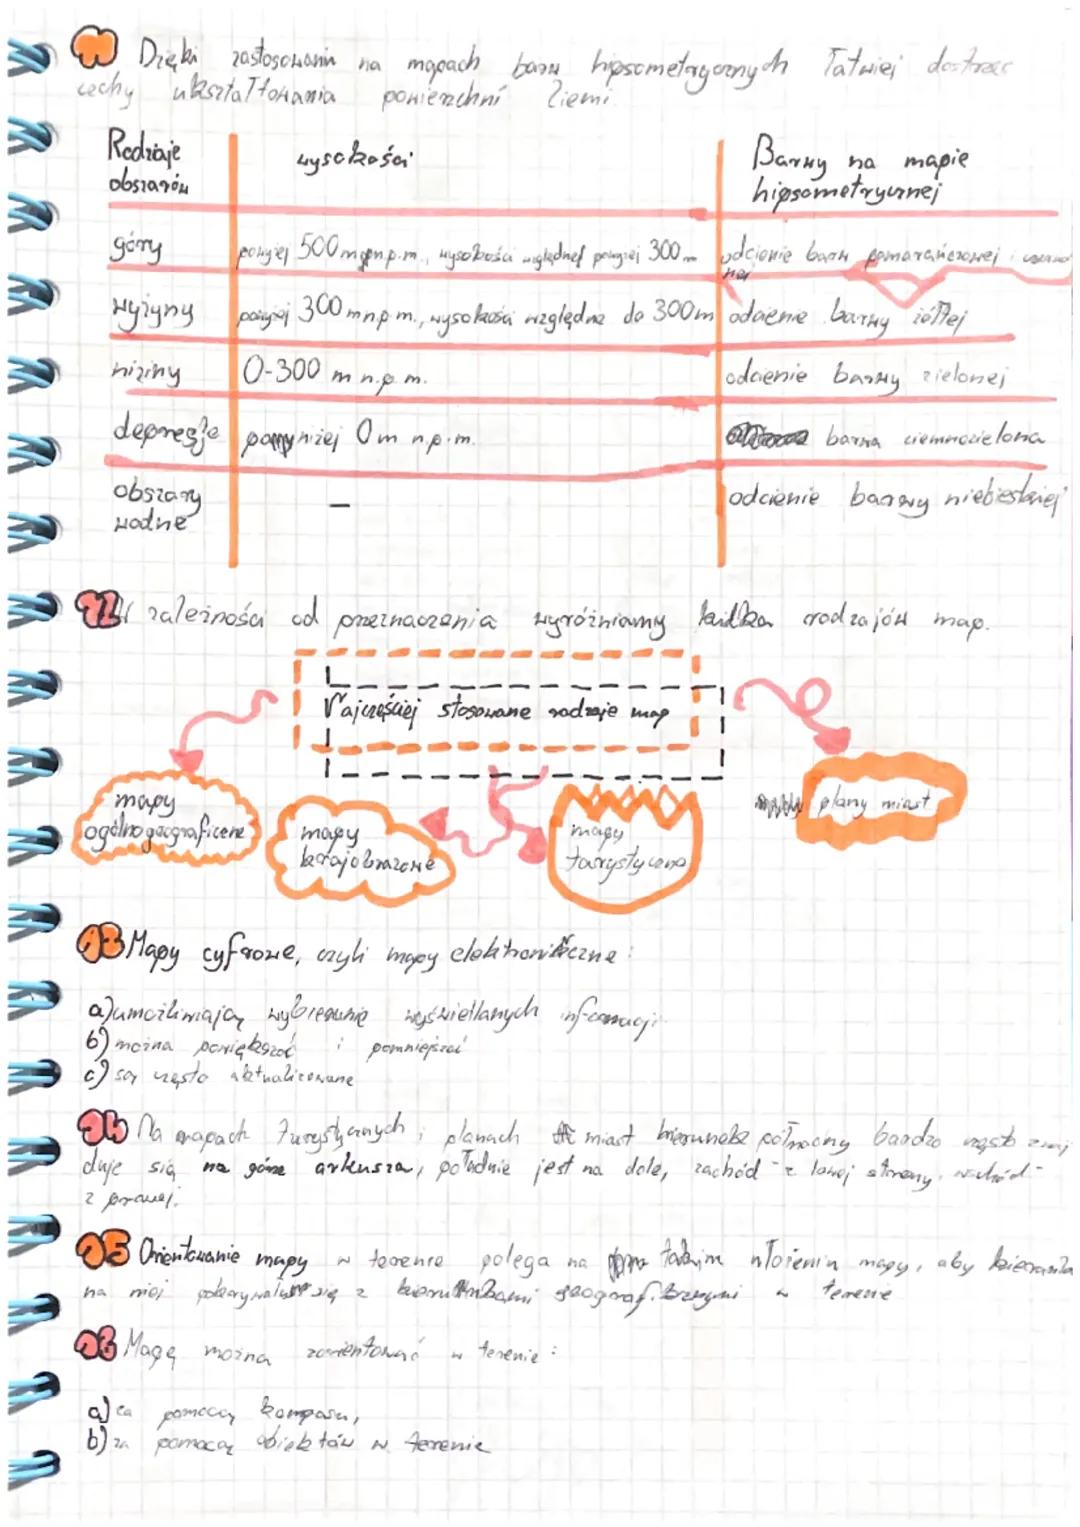 11 Dzięki zastosowaniu na mapach barw hipsometrycznych łatwiej dostrzec
cechy ukształtowania powierzchni Ziemi.
Rodzaje obszarów
wysokości
Barwy na mapie hipsometrycznej
góry
powyżej 500 m n.p.m., wysokości względnej powyżej 300 m
odcienie barw pomarańczowej i
wyżyny
powyżej 300 m n.p.m., wysokości względne do 300m
odcienie barwy żółtej
niziny
0-300 m n.p.m.
odcienie barwy zielonej
depresje
poniżej 0m n.p.m.
barwa ciemnozielona
obszary wodne
-
odcienie barwy niebieskiej
12 W zależności od przeznaczenia wyróżniamy kilka rodzajów map.
Najczęściej stosowane rodzaje map
mapy
ogólnogeograficzne
mapy
krajobrazowe
mapy
turystyczne
plany miast
13 Mapy cyfrowe, czyli mapy elektroniczne:
a) umożliwiają wybieranie wyświetlanych informacji
b) można powiększać i pomniejszać
c) są często aktualizowane
14 Na mapach turystycznych i planach miast kierunek północny bardzo często znaj
duje się na górze arkusza, południe jest na dole, zachód - z lewej strony, wschód -
z prawej.
15 Orientowanie mapy w terenie polega na takim ułożeniu mapy, aby kierunki
na niej pokrywały się z kierunkami geograficznymi w terenie
16 Mapę można zorientować w terenie:
a) za pomocą kompasu,
b) za pomocą obiektów w terenie